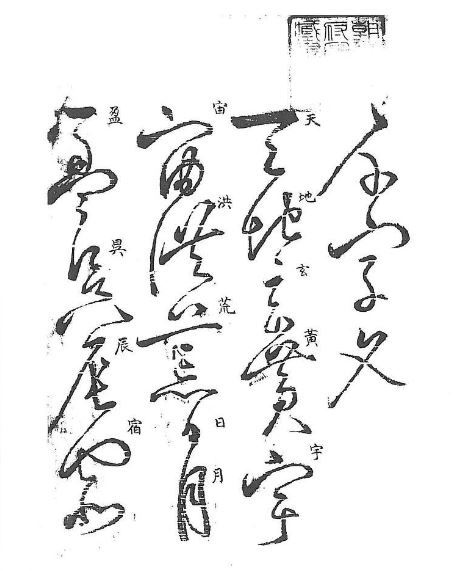 千字文
天地玄黃宇
宙洪荒日月
盈昃辰宿